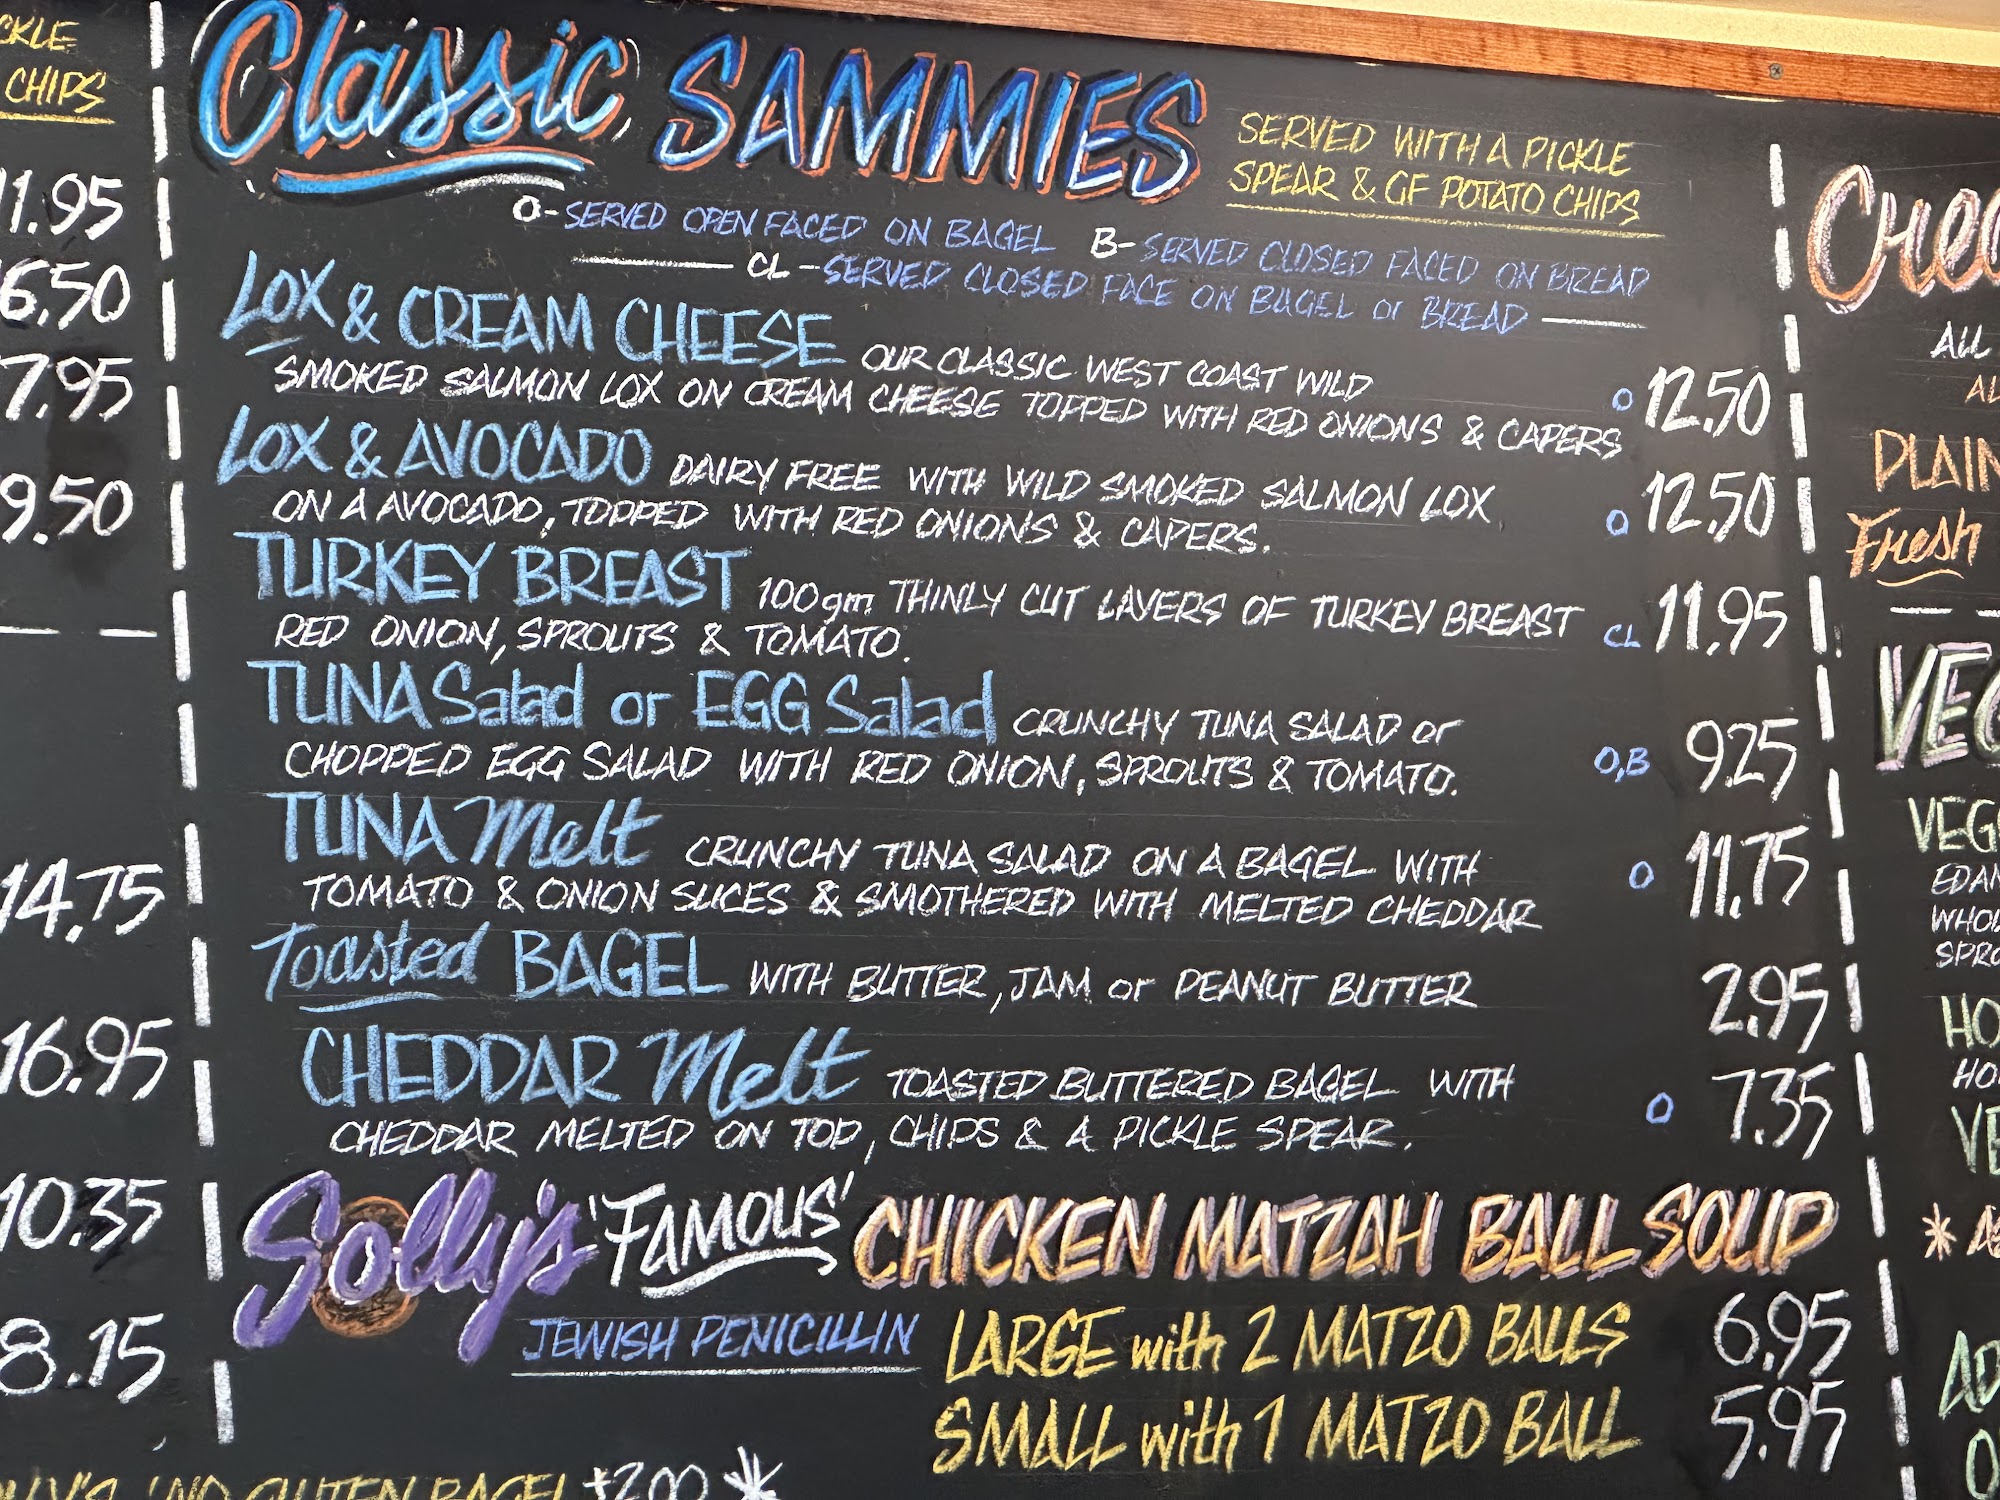 CHIPS
11.95
6.50
7.95
9.50
14.75
16.95
10.35
8.15
Classic SAMMIES
SERVED WITH A PICKLE
SPEAR & GF POTATO CHIPS
O-SERVED OPEN FACED ON BAGEL B-SERVED CLOSED FACED ON BREAD
CL-SERVED CLOSED FACE ON BAGEL or BREAD
LOX & CREAM CHEESE OUR CLASSIC WEST COAST WILD
SMOKED SALMON LOX ON CREAM CHEESE TOPPED WITH RED ONIONS & CAPERS O 12.50
LOX & AVOCADO DAIRY FREE WITH WILD SMOKED SALMON LOX
ON A AVOCADO, TOPPED WITH RED ONIONS & CAPERS. O 12.50
TURKEY BREAST 100gm THINLY CUT LAYERS OF TURKEY BREAST
RED ONION, SPROUTS & TOMATO. CL 11.95
TUNA Salad or EGG Salad CRUNCHY TUNA SALAD or
CHOPPED EGG SALAD WITH RED ONION, SPROUTS & TOMATO. O,B 9.25
TUNA Melt CRUNCHY TUNA SALAD ON A BAGEL WITH
TOMATO & ONION SLICES & SMOTHERED WITH MELTED CHEDDAR O 11.75
Toasted BAGEL WITH BUTTER, JAM or PEANUT BUTTER 2.95
CHEDDAR Melt TOASTED BUTTERED BAGEL WITH
CHEDDAR MELTED ON TOP, CHIPS & A PICKLE SPEAR. O 7.35
Solly's 'FAMOUS' CHICKEN MATZAH BALL SOUP
JEWISH PENICILLIN LARGE with 2 MATZO BALLS 6.95
SMALL with 1 MATZO BALL 5.95
'NO GLUTEN BAGEL +2.00 *
ALL
PLAIN
Fresh